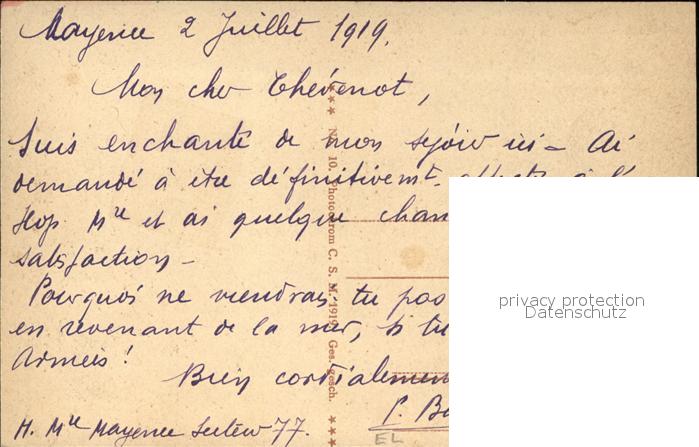 Mayence 2 Juillet 1919.
Mon cher Thévenot,
Suis enchanté de mon séjour ici - Ai
demandé à être définitivemt. à l'
Hop. Mre et ai quelque chan
satisfaction -
Pourquoi ne viendrais-tu pas
en revenant de la mer, si tu
Armées!
Bien cordialemen
P. Ba
H. Mre Mayence Secteur 77.
EL
10. Photochrom C. S. M. 1919. Ges. gesch.
privacy protection
Datenschutz